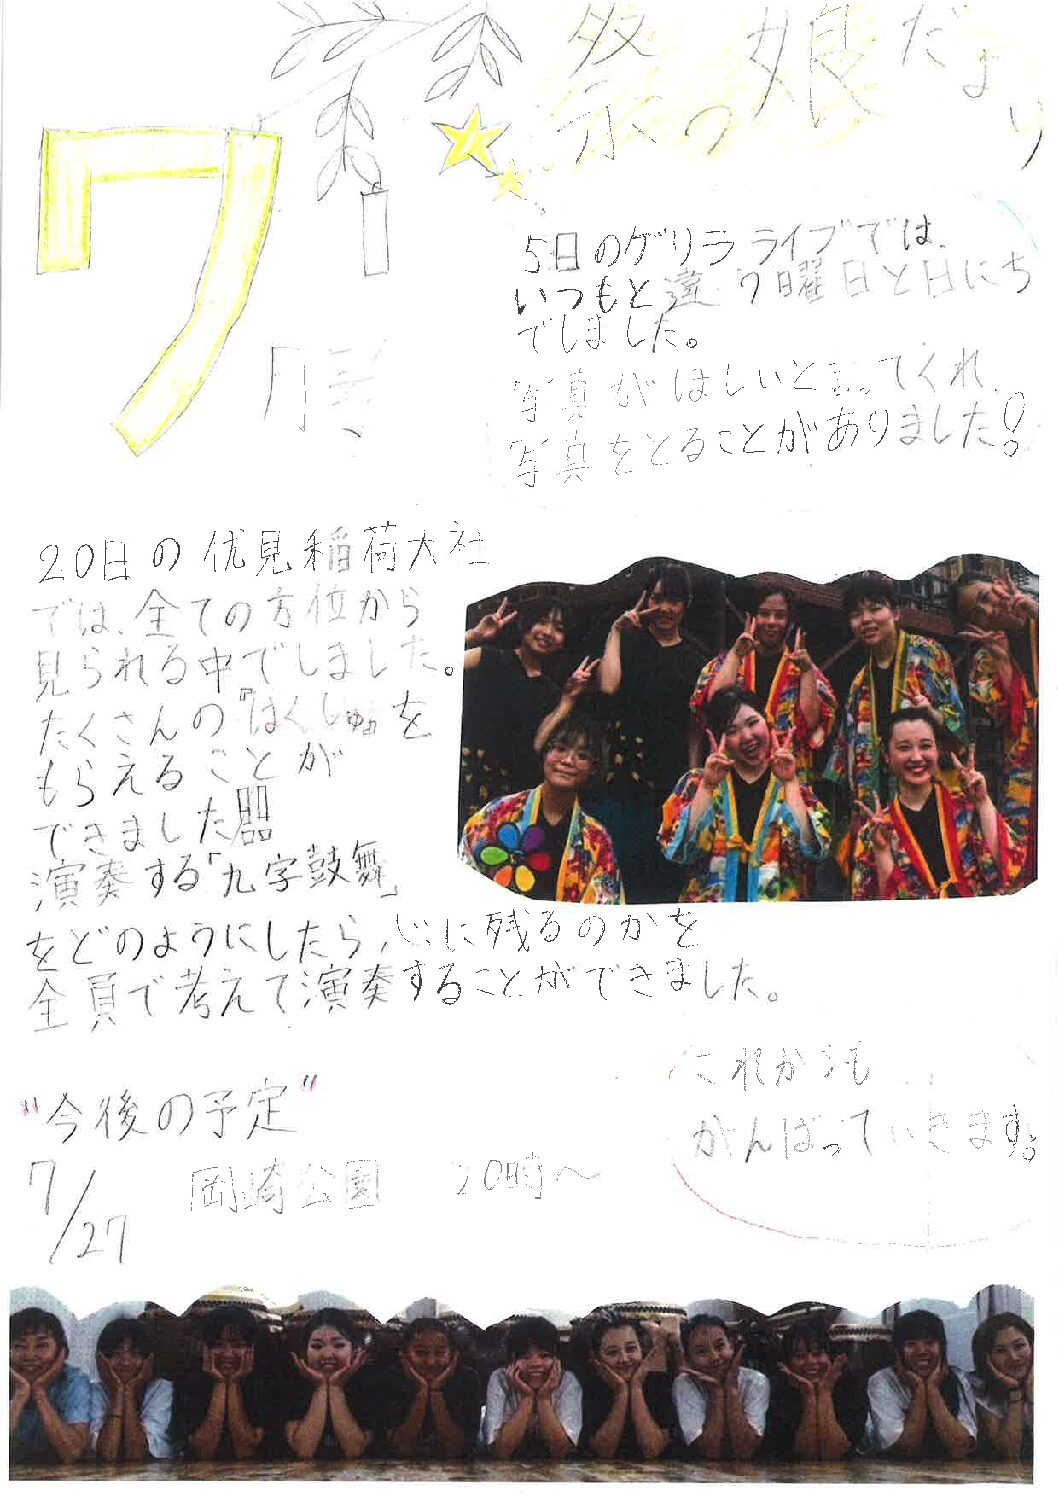 祭っ娘だより
7
月号
5日のゲリラライブでは、
いつもと違う曜日と日にち
でしました。
写真がほしいと言ってくれ、
写真をとることがありました!
20日の伏見稲荷大社
では、全ての方位から
見られる中でしました。
たくさんの『はくしゅ』を
もらえることが
できました!!!
演奏する「九字鼓舞」
をどのようにしたら、心に残るのかを
全員で考えて演奏することができました。
"今後の予定"
7/27 岡崎公園 20時〜
これからも
がんばっていきます。